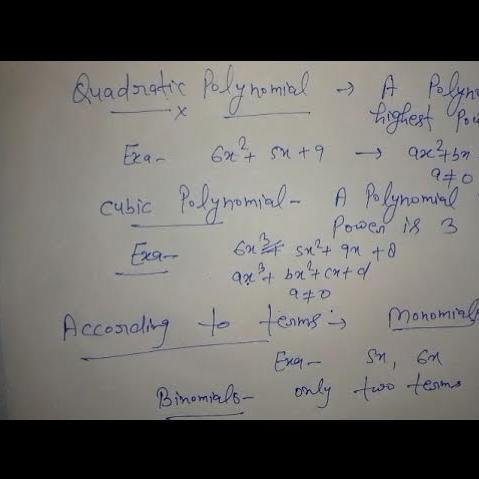 Quadratic Polynomial → A Polyn
x highest Pow
Exa- 6x² + 5x + 9 → ax² + bx
a≠0
Cubic Polynomial - A Polynomial
Power is 3
Exa- 6x³ + 5x² + 9x + 8
ax³ + bx² + cx + d
a≠0
According to terms → Monomials
Exa- 5x, 6x
Binomials - only two terms